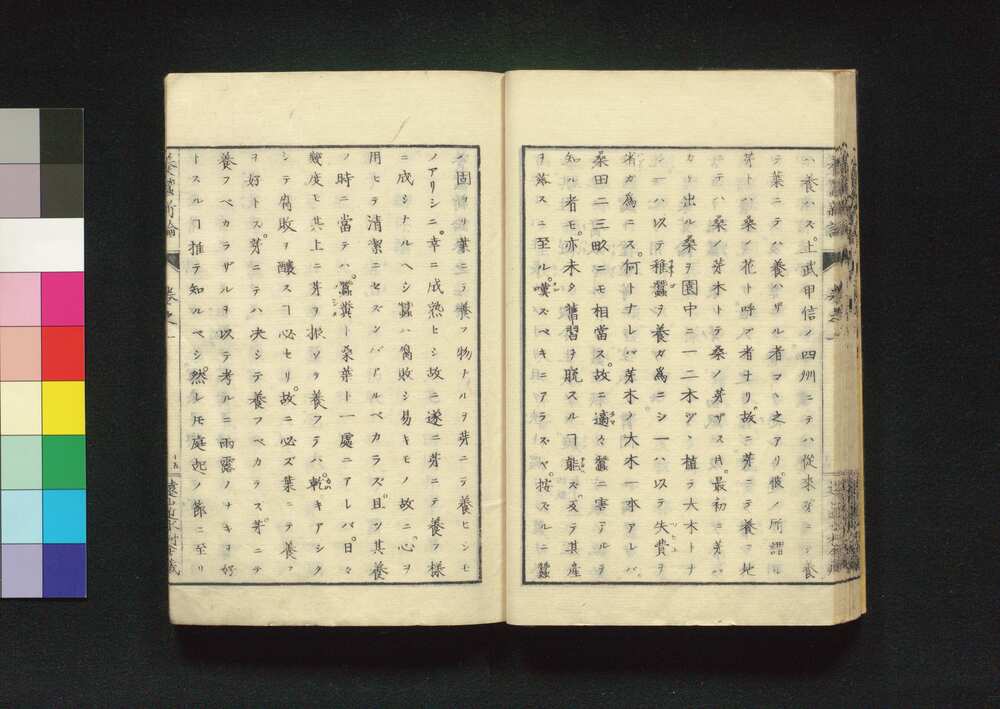 ハ養ハズ。上武甲信ノ四州ニテハ從來芽ニテ養
テ葉ニテハ養ハザル者マヽ之アリ。彼ノ所謂ル
芽トハ桑ノ花ト呼ブ者ナリ。故ニ芽ニテ養フ地
ニテハ桑ノ芽木トテ桑ノ芽ザス時。最初ニ芽ハ
カリ出ル桑ヲ園中ニ一二本ヅヽ植テ大木トナ
シ一ハ以テ稚蠶ヲ養ガ為ニシ一ハ以テ失費ヲ
省カ為ニス。何トナレバ芽木ノ大木一本アレバ。
桑田二三畝ニモ相當ス。故ニ適々蠶ニ害アルヲ
知ル者モ。亦未タ舊習ヲ脱スルヿ能ズ。反テ其產
ヲ落スニ至ル。嘆ズベキニアラズヤ。按ズルニ蠶
ハ固ヨリ葉ニテ養フ物トルヲ芽ニテ養ヒシモ
ノアリシニ。幸ニ成熟ヒシ故ニ遂ニ芽ニテ養フ樣
ニ成シナルヘシ蠶ハ腐敗シ易キモノ故ニ。心ヲ
用ヒテ清潔ニセズンバアルベカラズ。且ツ其養
ノ時ニ當テハ。蠶糞ト桑葉ト一處ニアレバ。日々
幾度モ其上ニ芽ヲ振ソヽ養フテハ。乾キアシク
シテ腐敗ヲ釀スヿ必セリ。故ニ必ズ葉ニテ養フ
ヲ好トス。芽ニテハ决シテ養フベカラス。芽ニテ
養フベカラザルヲ以テ考ルニ雨露ノナキヲ好
トスルヿ推テ知ルベシ。然レ𪜈庭起ノ節ニ至リ
養蠶新論
卷之一